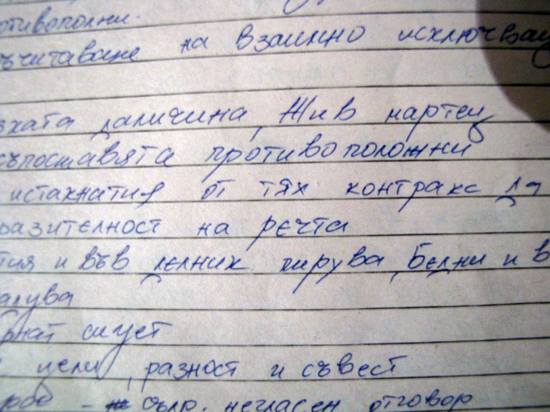 отивополни.
ъчитаване на взаимно изключващ
яхата даличина, Жив мартец
съпоставята противоположни
истахнатия от тях контракс дл
разителност на речта
тия и във делник пирува, Бедни и в
алува
рнат силует
цели, разност и съвест
- съло, негласен отговор